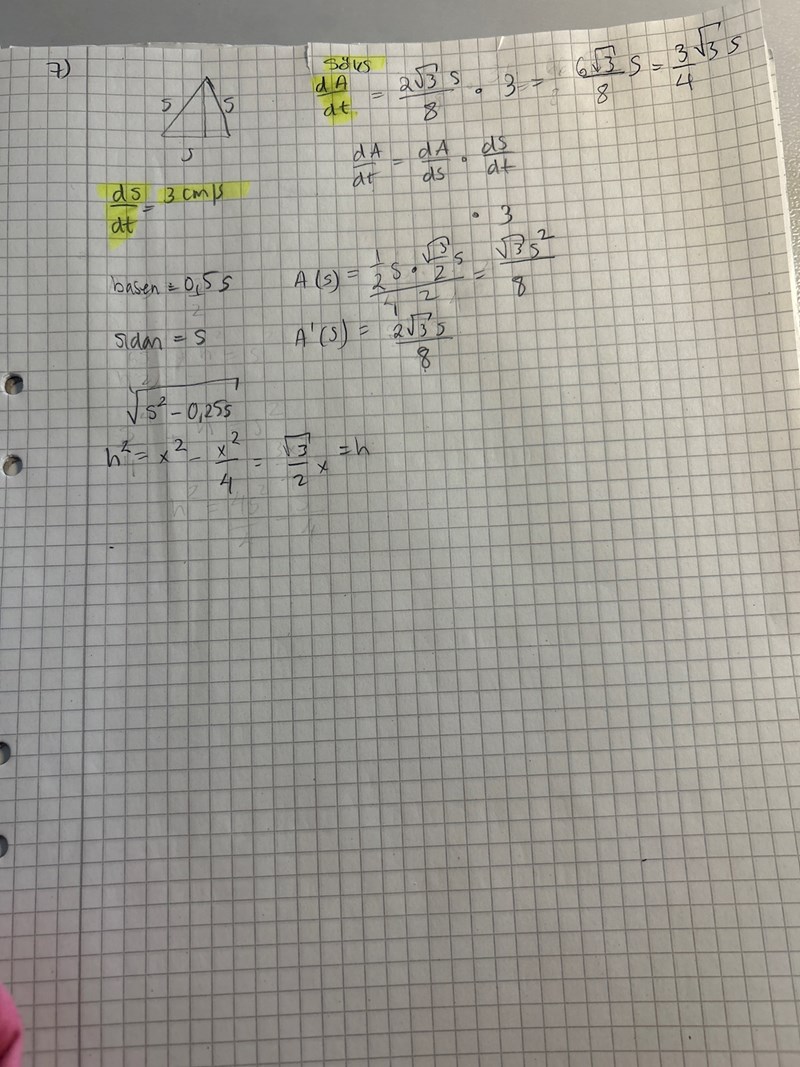 7)
s s
s
ds/dt = 3 cm/s
basen = 0,5s
2
sidan = s
√(s² - 0,25s)
h² = x² - x²/4 = √3/2 x = h
söks
dA/dt = 2√3 s/8 · 3 = 6√3/8 s = 3/4 √3 s
dA/dt = dA/ds · ds/dt
· 3
A(s) = (1/2 s · √3/2 s)/2 = √3s²/8
4
A'(s) = 2√3s/8